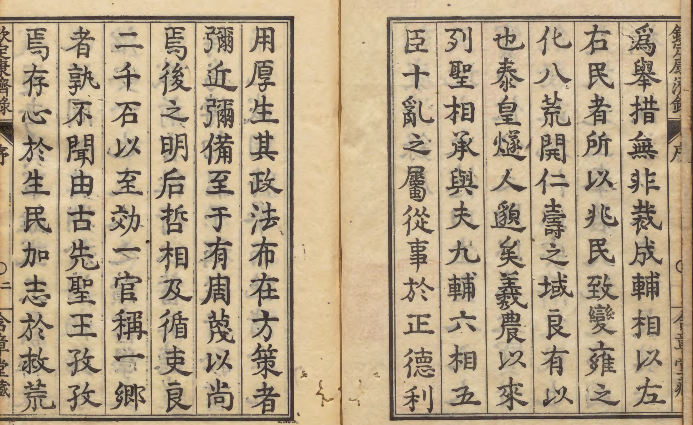 爲舉措無非裁成輔相以左
右民者所以兆民致變雍之
化八荒開仁壽之域良有以
也泰皇燧人邈矣羲農以來
列聖相承與夫九輔六相五
臣十亂之屬從事於正德利
用厚生其政法布在方策者
彌近彌備至于有周蔑以尚
焉後之明后哲相及循吏良
二千石以至効一官稱一鄉
者孰不聞由古先聖王孜孜
焉存心於生民加志於救荒
欽定康濟錄
序
二
含章堂藏